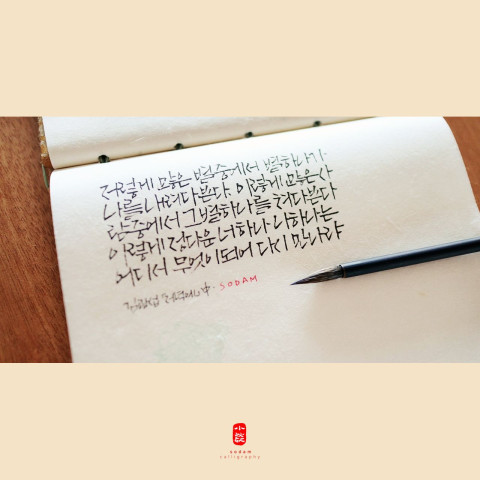 저렇게 많은 별중에서 별하나가
나를 내려다본다 이렇게 많은사
람중에서 그별하나를 쳐다본다
이렇게 정다운 너하나 나하나는
어디서 무엇이되어 다시 만나랴
김광섭 저녁에 中 · SODAM
小談
sodam
calligraphy